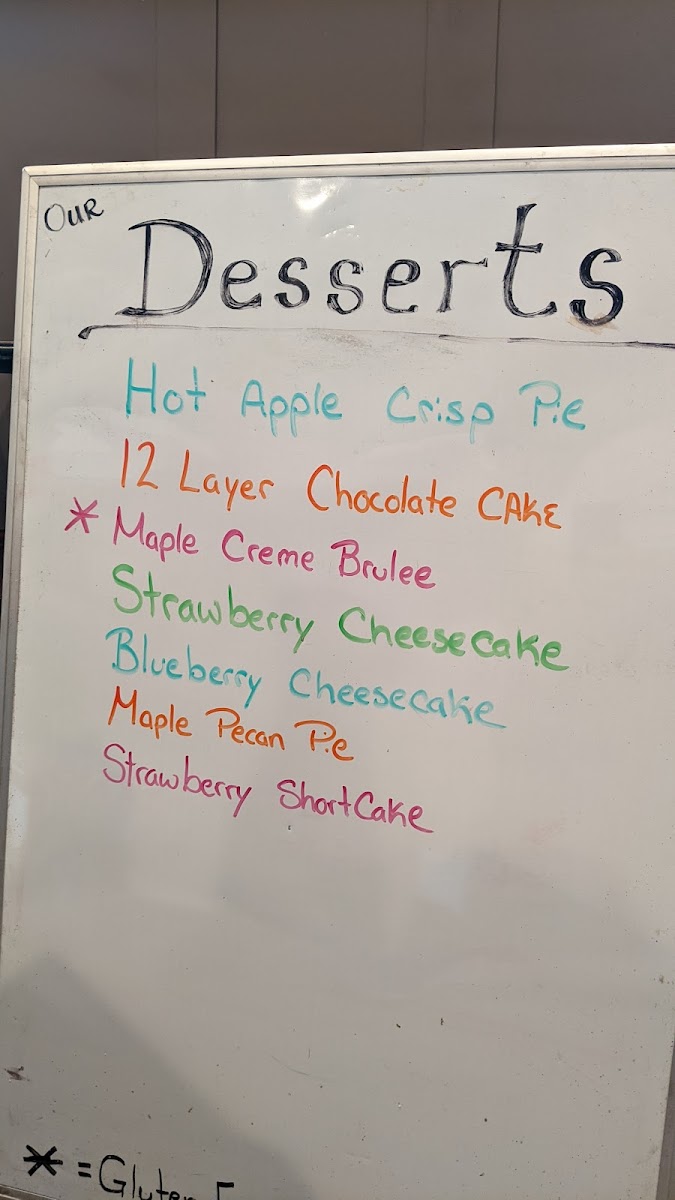 OUR
Desserts
Hot Apple Crisp Pie
12 Layer Chocolate CAKE
* Maple Creme Brulee
Strawberry Cheesecake
Blueberry Cheesecake
Maple Pecan Pie
Strawberry ShortCake
* = Gluten